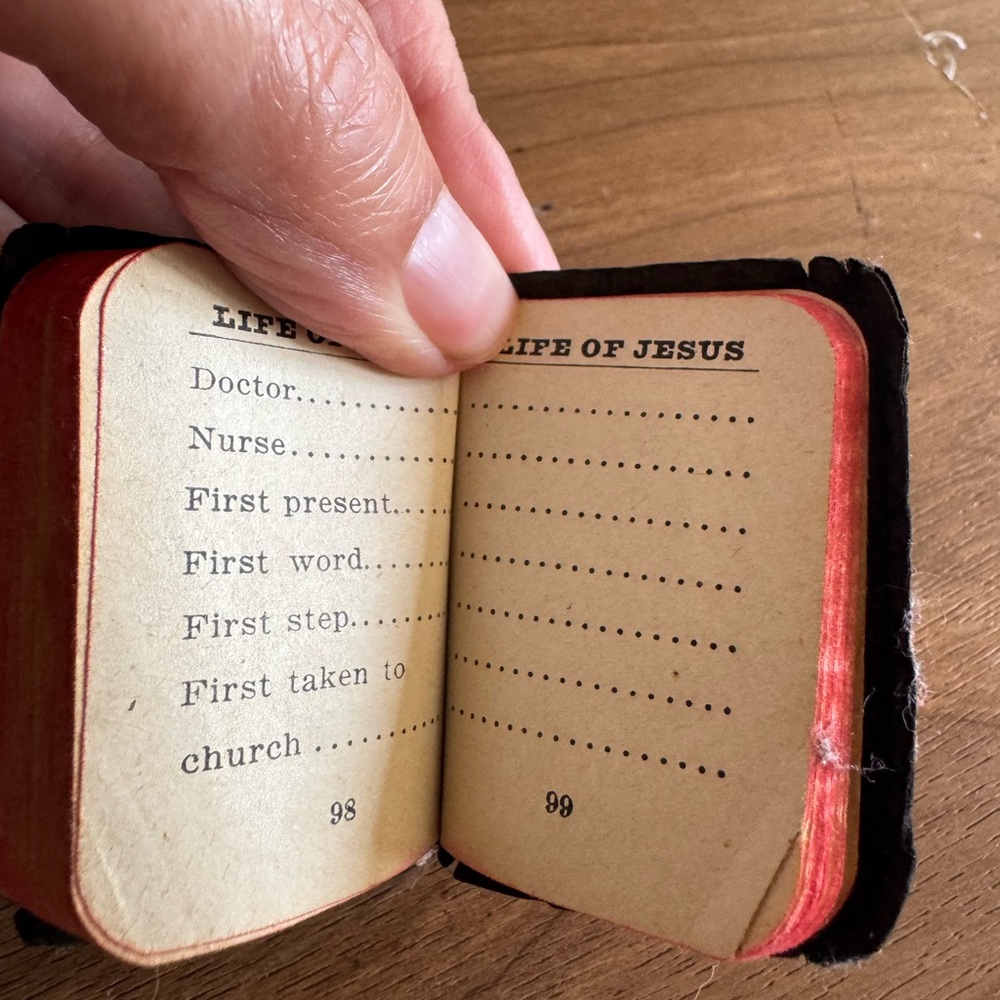 LIFE
Doctor....................
Nurse....................
First present....................
First word....................
First step....................
First taken to
church ....................
98
LIFE OF JESUS
99